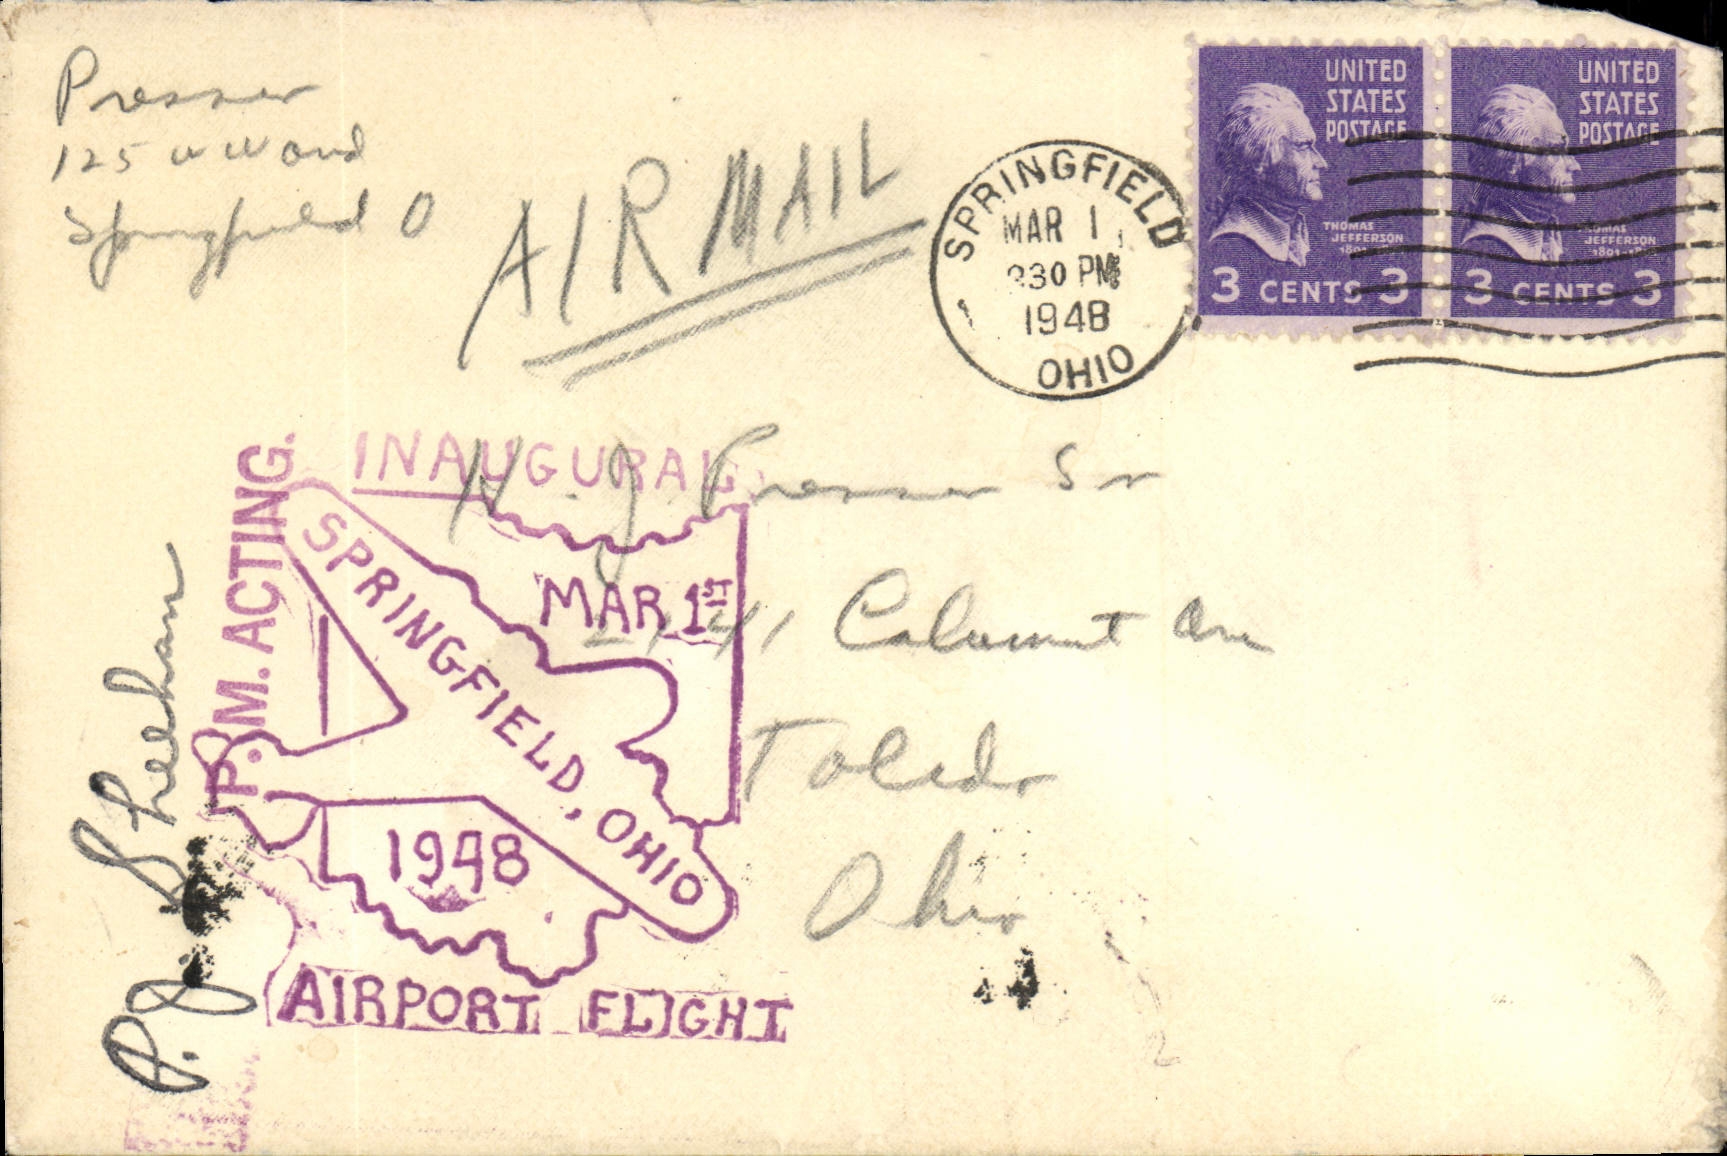 Presser
125 W Ward
Springfield O
AIR MAIL
SPRINGFIELD
MAR 1
230 PM
1948
OHIO
UNITED
STATES
POSTAGE
THOMAS
JEFFERSON
3 CENTS 3
UNITED
STATES
POSTAGE
THOMAS
JEFFERSON
3 CENTS 3
INAUGURAL
SPRINGFIELD, OHIO
MAR 1ST
1948
AIRPORT FLIGHT
P.M. ACTING.
P. J. Sheehan
H. J. Presser Sr
Calumet Ave
Toledo
Ohio